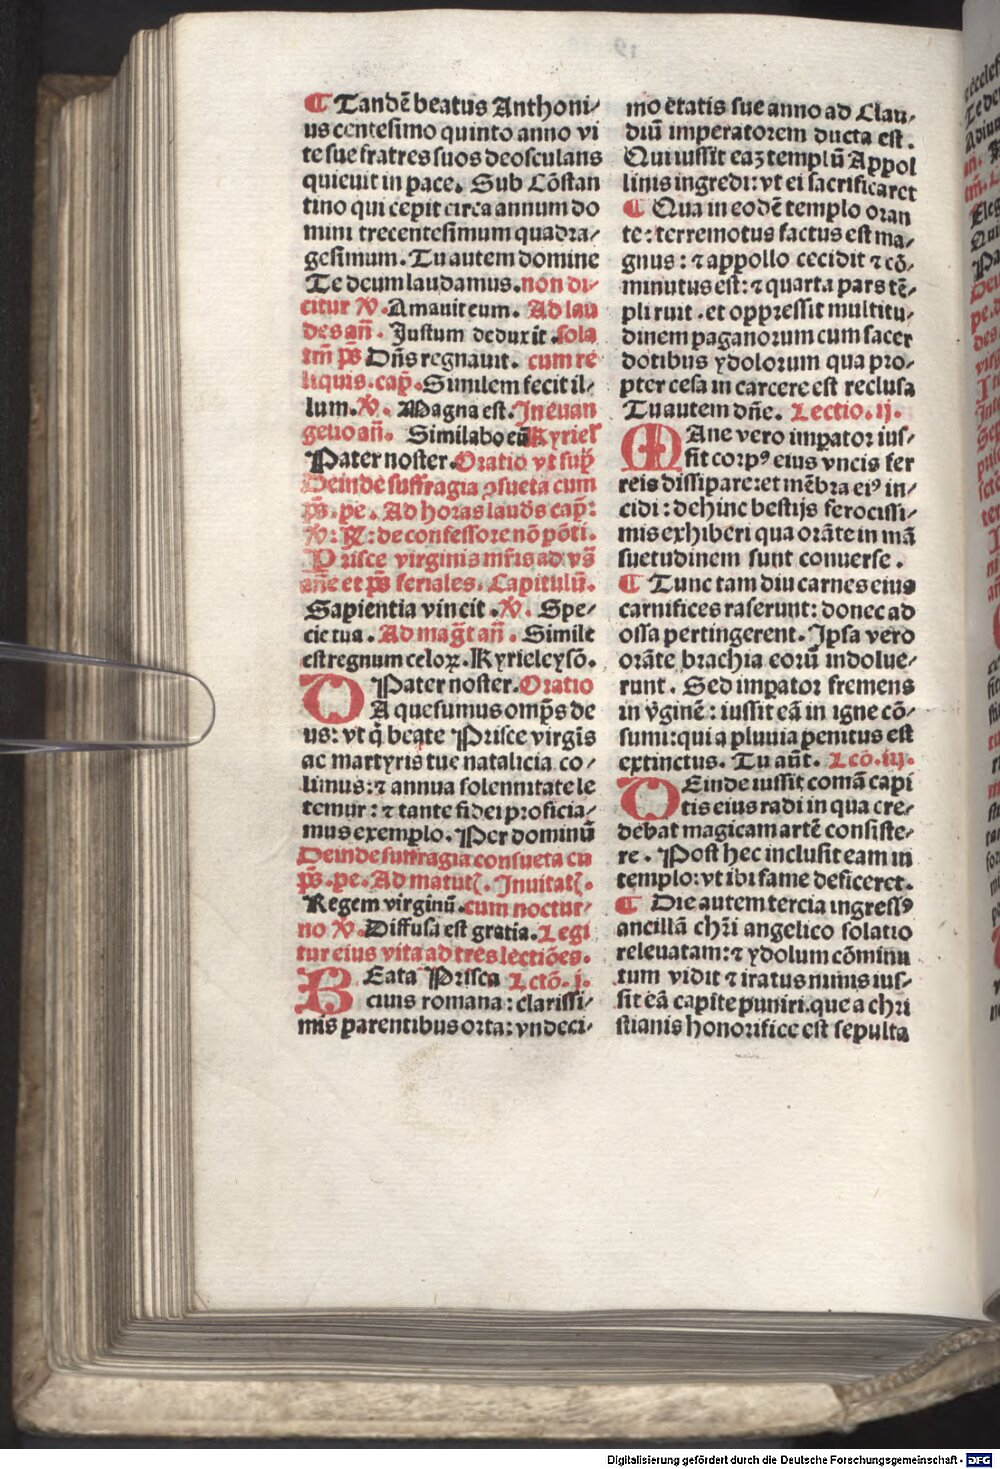 ¶ Tandē beatus Anthoni⸗
us centesimo quinto anno vi
te sue fratres suos deosculans
quieuit in pace. Sub Cōstan
tino qui cepit circa annum do
mini trecentesimum quadra⸗
gesimum. Tu autem domine
Te deum laudamus. non di⸗
citur V̛. Amauit eum. Ad lau
des añ. Justum deduxit. sola
tm̄ p̄s Dn̄s regnauit. cum re
liquis. cap̄. Similem fecit il⸗
lum. V̛. Magna est. In euan
gelio añ. Similabo eū Kyriel
Pater noster. Oratio vt sup̄
Deinde suffragia ꝯsueta cum
p̄s. pe. Ad horas laud̄s cap̄:
V̛: R̛: de confessore nō pōti.
Prisce virginis mr̄is ad vs̄
añe et p̄s feriales. Capitulū.
Sapientia vincit. V̛. Spe⸗
cie tua. Ad mag̃t añ. Simile
est regnum celoꝝ. Kyrieleysō.
Pater noster. Oratio
DA quesumus omp̄s de
us: vt q̄ beate Prisce virgīs
ac martyris tue natalicia co⸗
limus: ⁊ annua solennitate le
temur: ⁊ tante fidei proficia⸗
mus exemplo. Per dominū
Deinde suffragia consueta cū
p̄s. pe. Ad matutꝭ. Inuitatꝭ.
Regem virginū. cum noctur⸗
no V̛. Diffusa est gratia. Legi
tur eius vita ad tres lectiōes.
BEata Prisca Lctō. j.
ciuis romana: clarissi⸗
mis parentibus orta: vndeci⸗
mo etatis sue anno ad Clau⸗
diū imperatorem ducta est.
Qui iussit eaꝫ templū Appol
linis ingredi: vt ei sacrificaret
¶ Qua in eodē templo oran
te: terremotus factus est ma⸗
gnus: ⁊ appollo cecidit ⁊ cō⸗
minutus est: ⁊ quarta pars tē⸗
pli ruit. et oppressit multitu⸗
dinem paganorum cum sacer
dotibus ydolorum qua pro⸗
pter cesa in carcere est reclusa
Tu autem dn̄e. Lectio. ij.
MAne vero imp̄ator ius⸗
sit corpꝰ eius vncis fer
reis dissipare: et mēbra eiꝰ in⸗
cidi: dehinc bestijs ferocissi⸗
mis exhiberi qua orāte in mā
suetudinem sunt conuerse.
¶ Tunc tam diu carnes eius
carnifices raserunt: donec ad
ossa pertingerent. Ipsa vero
orāte brachia eorū indolue⸗
runt. Sed imp̄ator fremens
in v̄ginē: iussit eā in igne cō⸗
sumi: qui a pluuia penitus est
extinctus. Tu aūt. Lcō. iij.
DEinde iussit comā capi
tis eius radi in qua cre⸗
debat magicam artē consiste⸗
re. Post hec inclusit eam in
templo: vt ibi fame deficeret.
¶ Die autem tercia ingressꝰ
ancillā chr̄i angelico solatio
releuatam: ⁊ ydolum cōminu
tum vidit ⁊ iratus nimis ius⸗
sit eā capite puniri. que a chri
stianis honorifice est sepulta
Digitalisierung gefördert durch die Deutsche Forschungsgemeinschaft - DFG